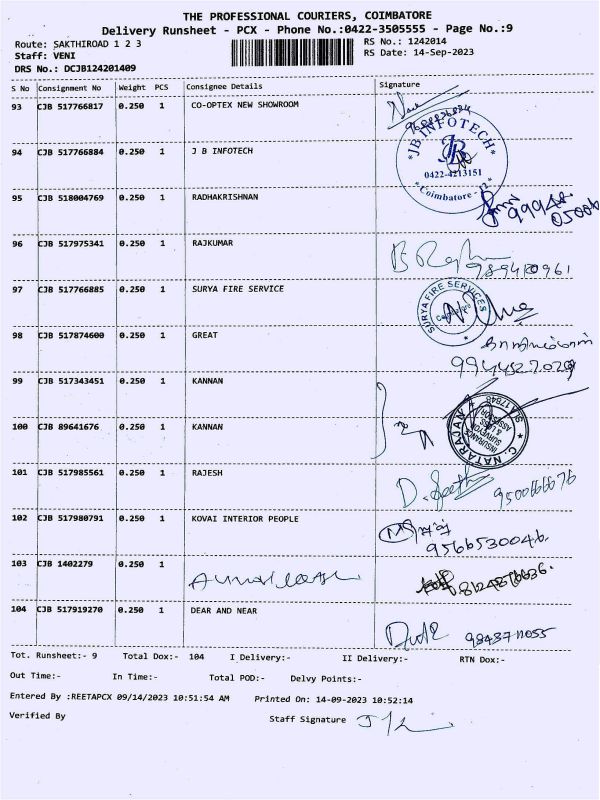 THE PROFESSIONAL COURIERS, COIMBATORE
Delivery Runsheet - PCX - Phone No.:0422-3505555 - Page No.:9
Route: SAKTHIROAD 1 2 3 RS No.: 1242014
Staff: VENI RS Date: 14-Sep-2023
DRS No.: DCJB124201409
S No Consignment No Weight PCS Consignee Details Signature
93 CJB 517766817 0.250 1 CO-OPTEX NEW SHOWROOM
94 CJB 517766884 0.250 1 J B INFOTECH
* JB INFOTECH *
JB
0422-4213151
* Coimbatore - 12 *
95 CJB 518004769 0.250 1 RADHAKRISHNAN
96 CJB 517975341 0.250 1 RAJKUMAR
97 CJB 517766885 0.250 1 SURYA FIRE SERVICE
SURYA FIRE SERVICES
98 CJB 517874600 0.250 1 GREAT
99 CJB 517343451 0.250 1 KANNAN
100 CJB 89641676 0.250 1 KANNAN
C. NATARAJAN
INSURANCE
SURVEYOR
& LOSS
ASSESSOR
101 CJB 517985561 0.250 1 RAJESH
102 CJB 517980791 0.250 1 KOVAI INTERIOR PEOPLE
9566530046
103 CJB 1402279 0.250 1
104 CJB 517919270 0.250 1 DEAR AND NEAR
9843711055
Tot. Runsheet:- 9 Total Dox:- 104 I Delivery:- II Delivery:- RTN Dox:-
Out Time:- In Time:- Total POD:- Delvy Points:-
Entered By :REETAPCX 09/14/2023 10:51:54 AM Printed On: 14-09-2023 10:52:14
Verified By Staff Signature